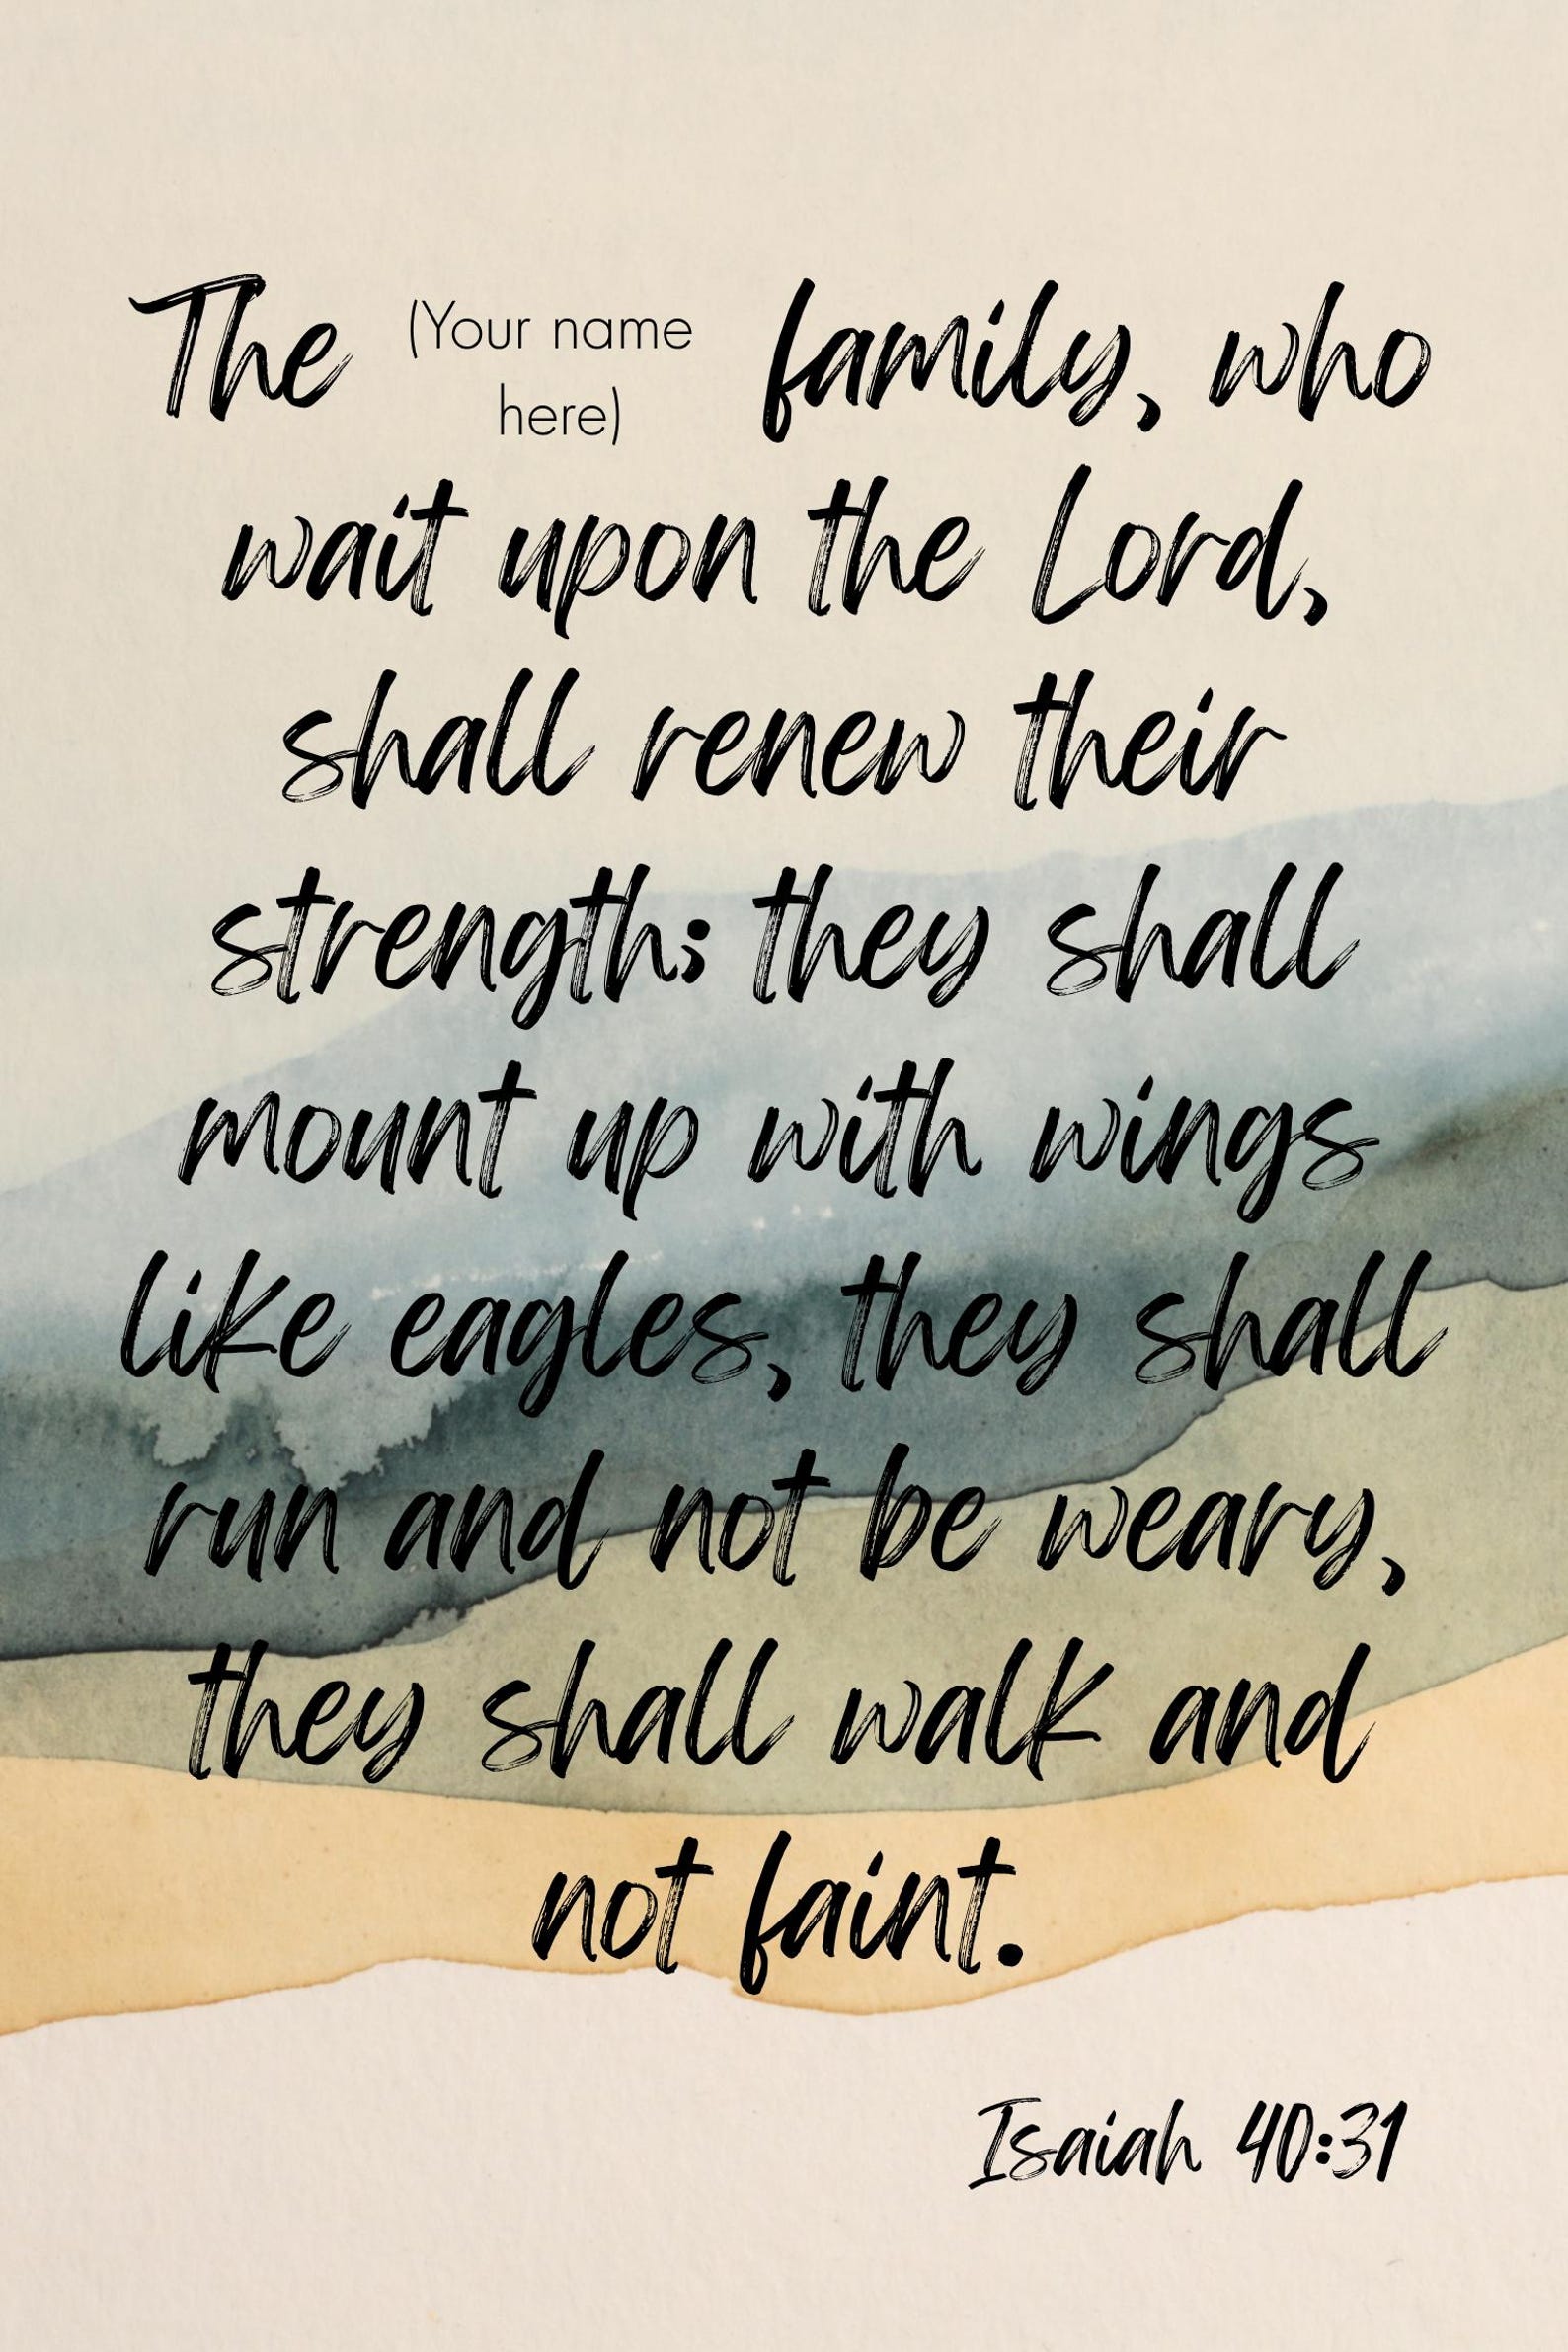 The (Your name here) family, who
wait upon the Lord,
shall renew their
strength; they shall
mount up with wings
like eagles, they shall
run and not be weary,
they shall walk and
not faint.
Isaiah 40:31